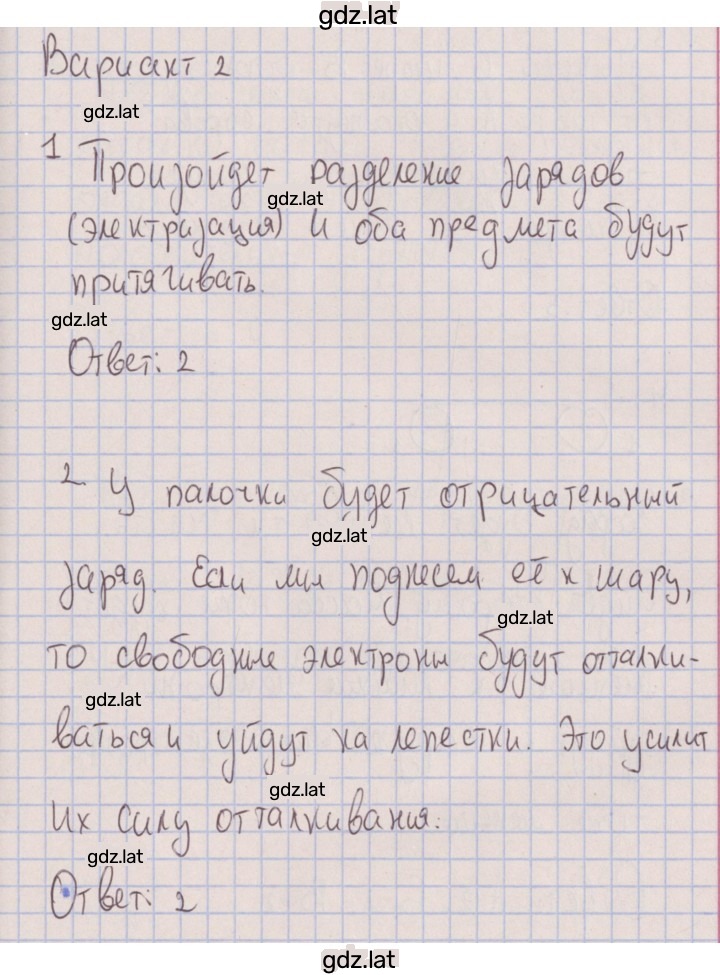 gdz.lat
Вариант 2
gdz.lat
1 Произойдет разделение зарядов
gdz.lat
(электризация) и оба предмета будут
притягивать.
gdz.lat
Ответ: 2
2 У палочки будет отрицательный
gdz.lat
заряд. Если мы поднесем её к шару,
gdz.lat
то свободные электроны будут отталки-
gdz.lat
ваться и уйдут на лепестки. Это усилит
gdz.lat
их силу отталкивания.
gdz.lat
Ответ: 2
gdz.lat